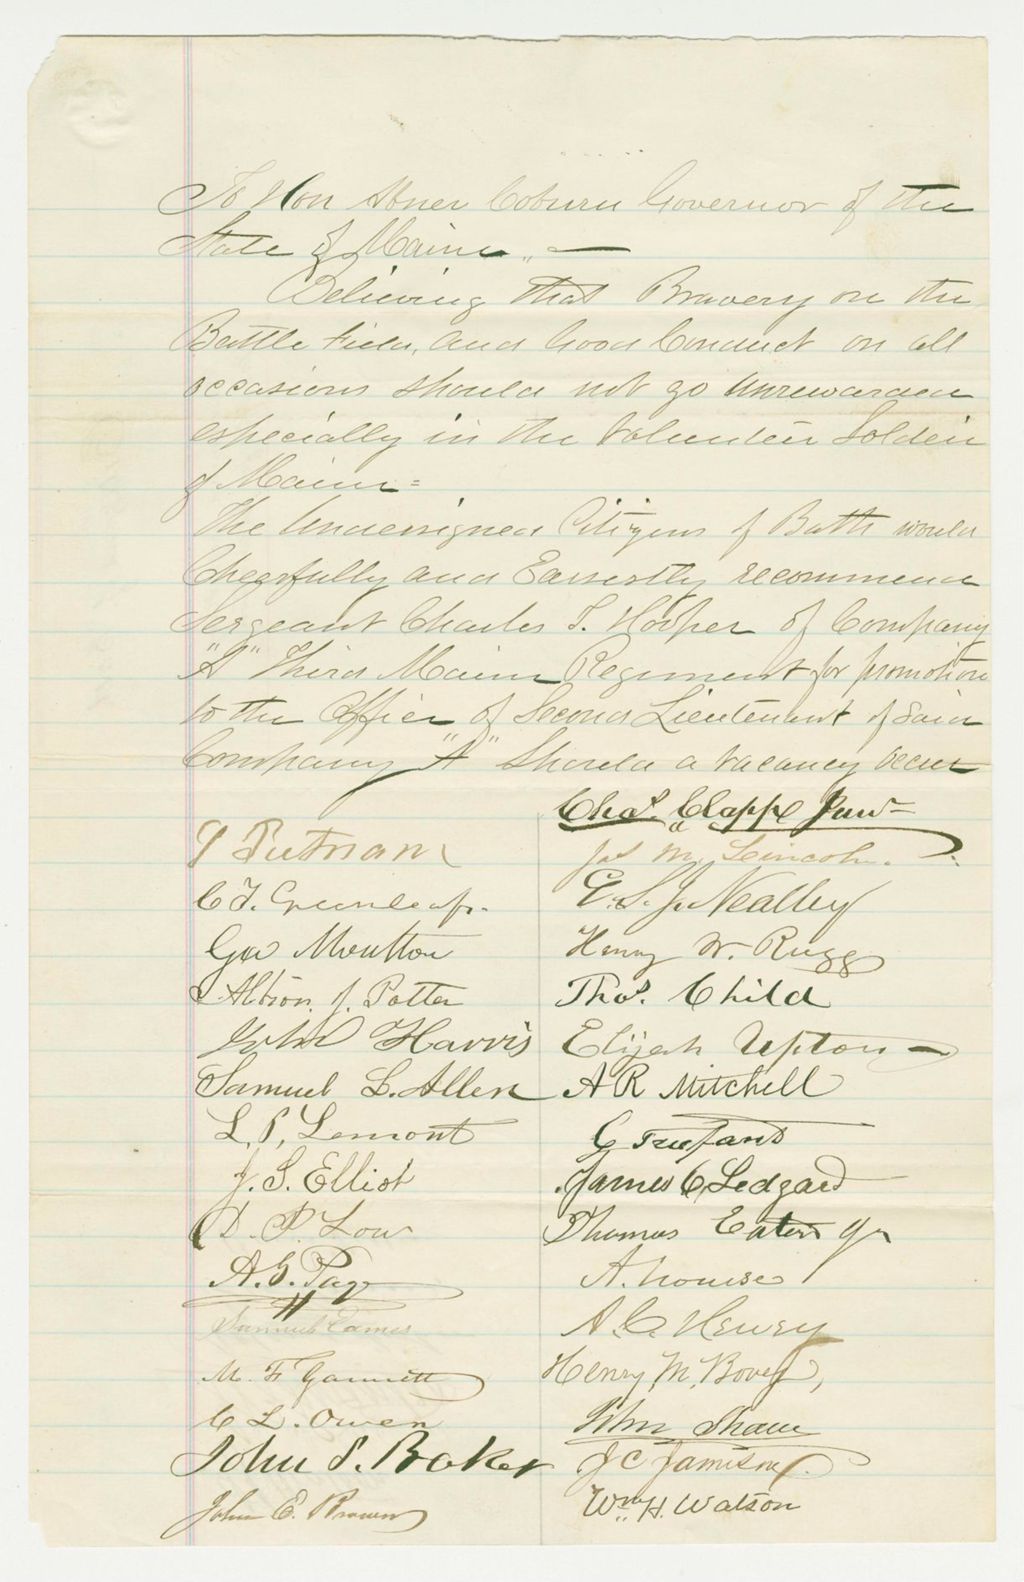 To Hon Abner Coburn Governor of the
State of Maine,, —
Believing that Bravery on the
Battle Field, and Good Conduct on all
occasions should not go unrewarded
especially in the Volunteer Soldier
of Maine =
The Undersigned Citizens of Bath would
Cheerfully and Earnestly recommend
Sergeant Charles T. Hooper of Company
"A" Third Maine Regiment for promotion
to the Office of Second Lieutenant of Said
Company "A" Should a vacancy occur
Chas. Clapp Junr
Putnam
Jas M. Lincoln.
C F. Greenleaf.
E. S. J. Nealley
Geo Moulton
Henry W. Rugg
Albion J. Potter
Thos. Child
John Harris
Elijah Upton
Samuel L. Allen
A R Mitchell
L. P. Lemont
G Trufant
J. S. Elliot
James C Ledgard
D. P. Low
Thomas Eaton Jr
A. G. Page
A.
Samuel Eames
A. C. Hewey
M. F Gannett
Henry M. Bovey,
C L. Owen
John Shaw
John S. Baker
J C Jamison.
John E. Brown
Wm. H. Watson